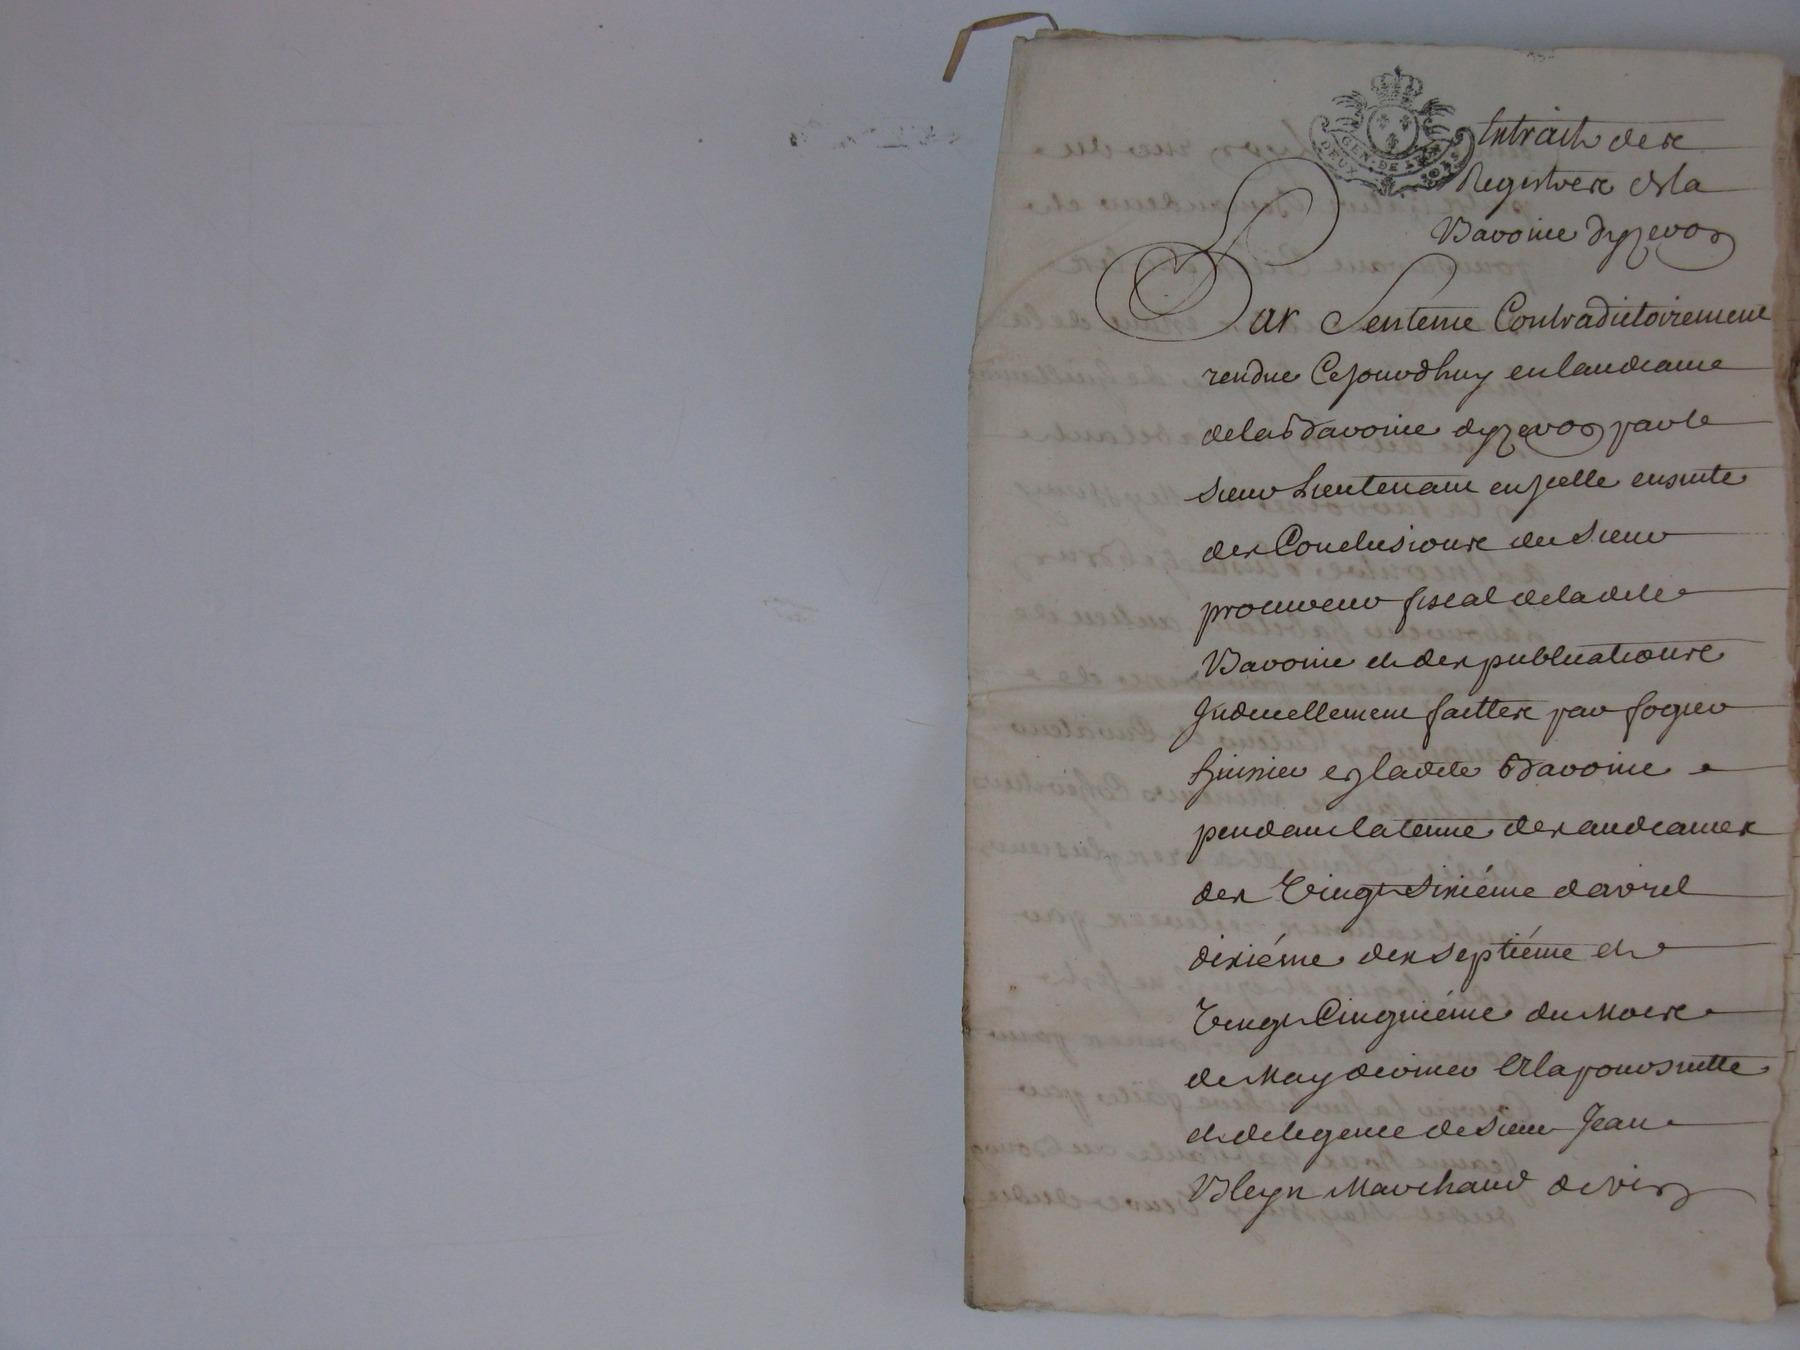 GEN. DE LYON
DEUX S
Extrait des
Registres de la
Baronie dyzeron
Par Sentence Contradictoirement
rendue Cejourdhuy en laudiance
de la Baronie dyzeron par le
sieur Lieutenant en jcelle ensuite
des Conclusions du sieur
procureur fiscal de ladite
Baronie et des publications
Judiciellement faittes par
huissier en ladite Baronie
pendant la tenue des audiances
des Vingt sixiéme davril
dixiéme dix septiéme et
Vingt Cinquiéme du mois
de May dernier a la poursuitte
et deligence de sieur Jean
Bleyn Marchand de vin